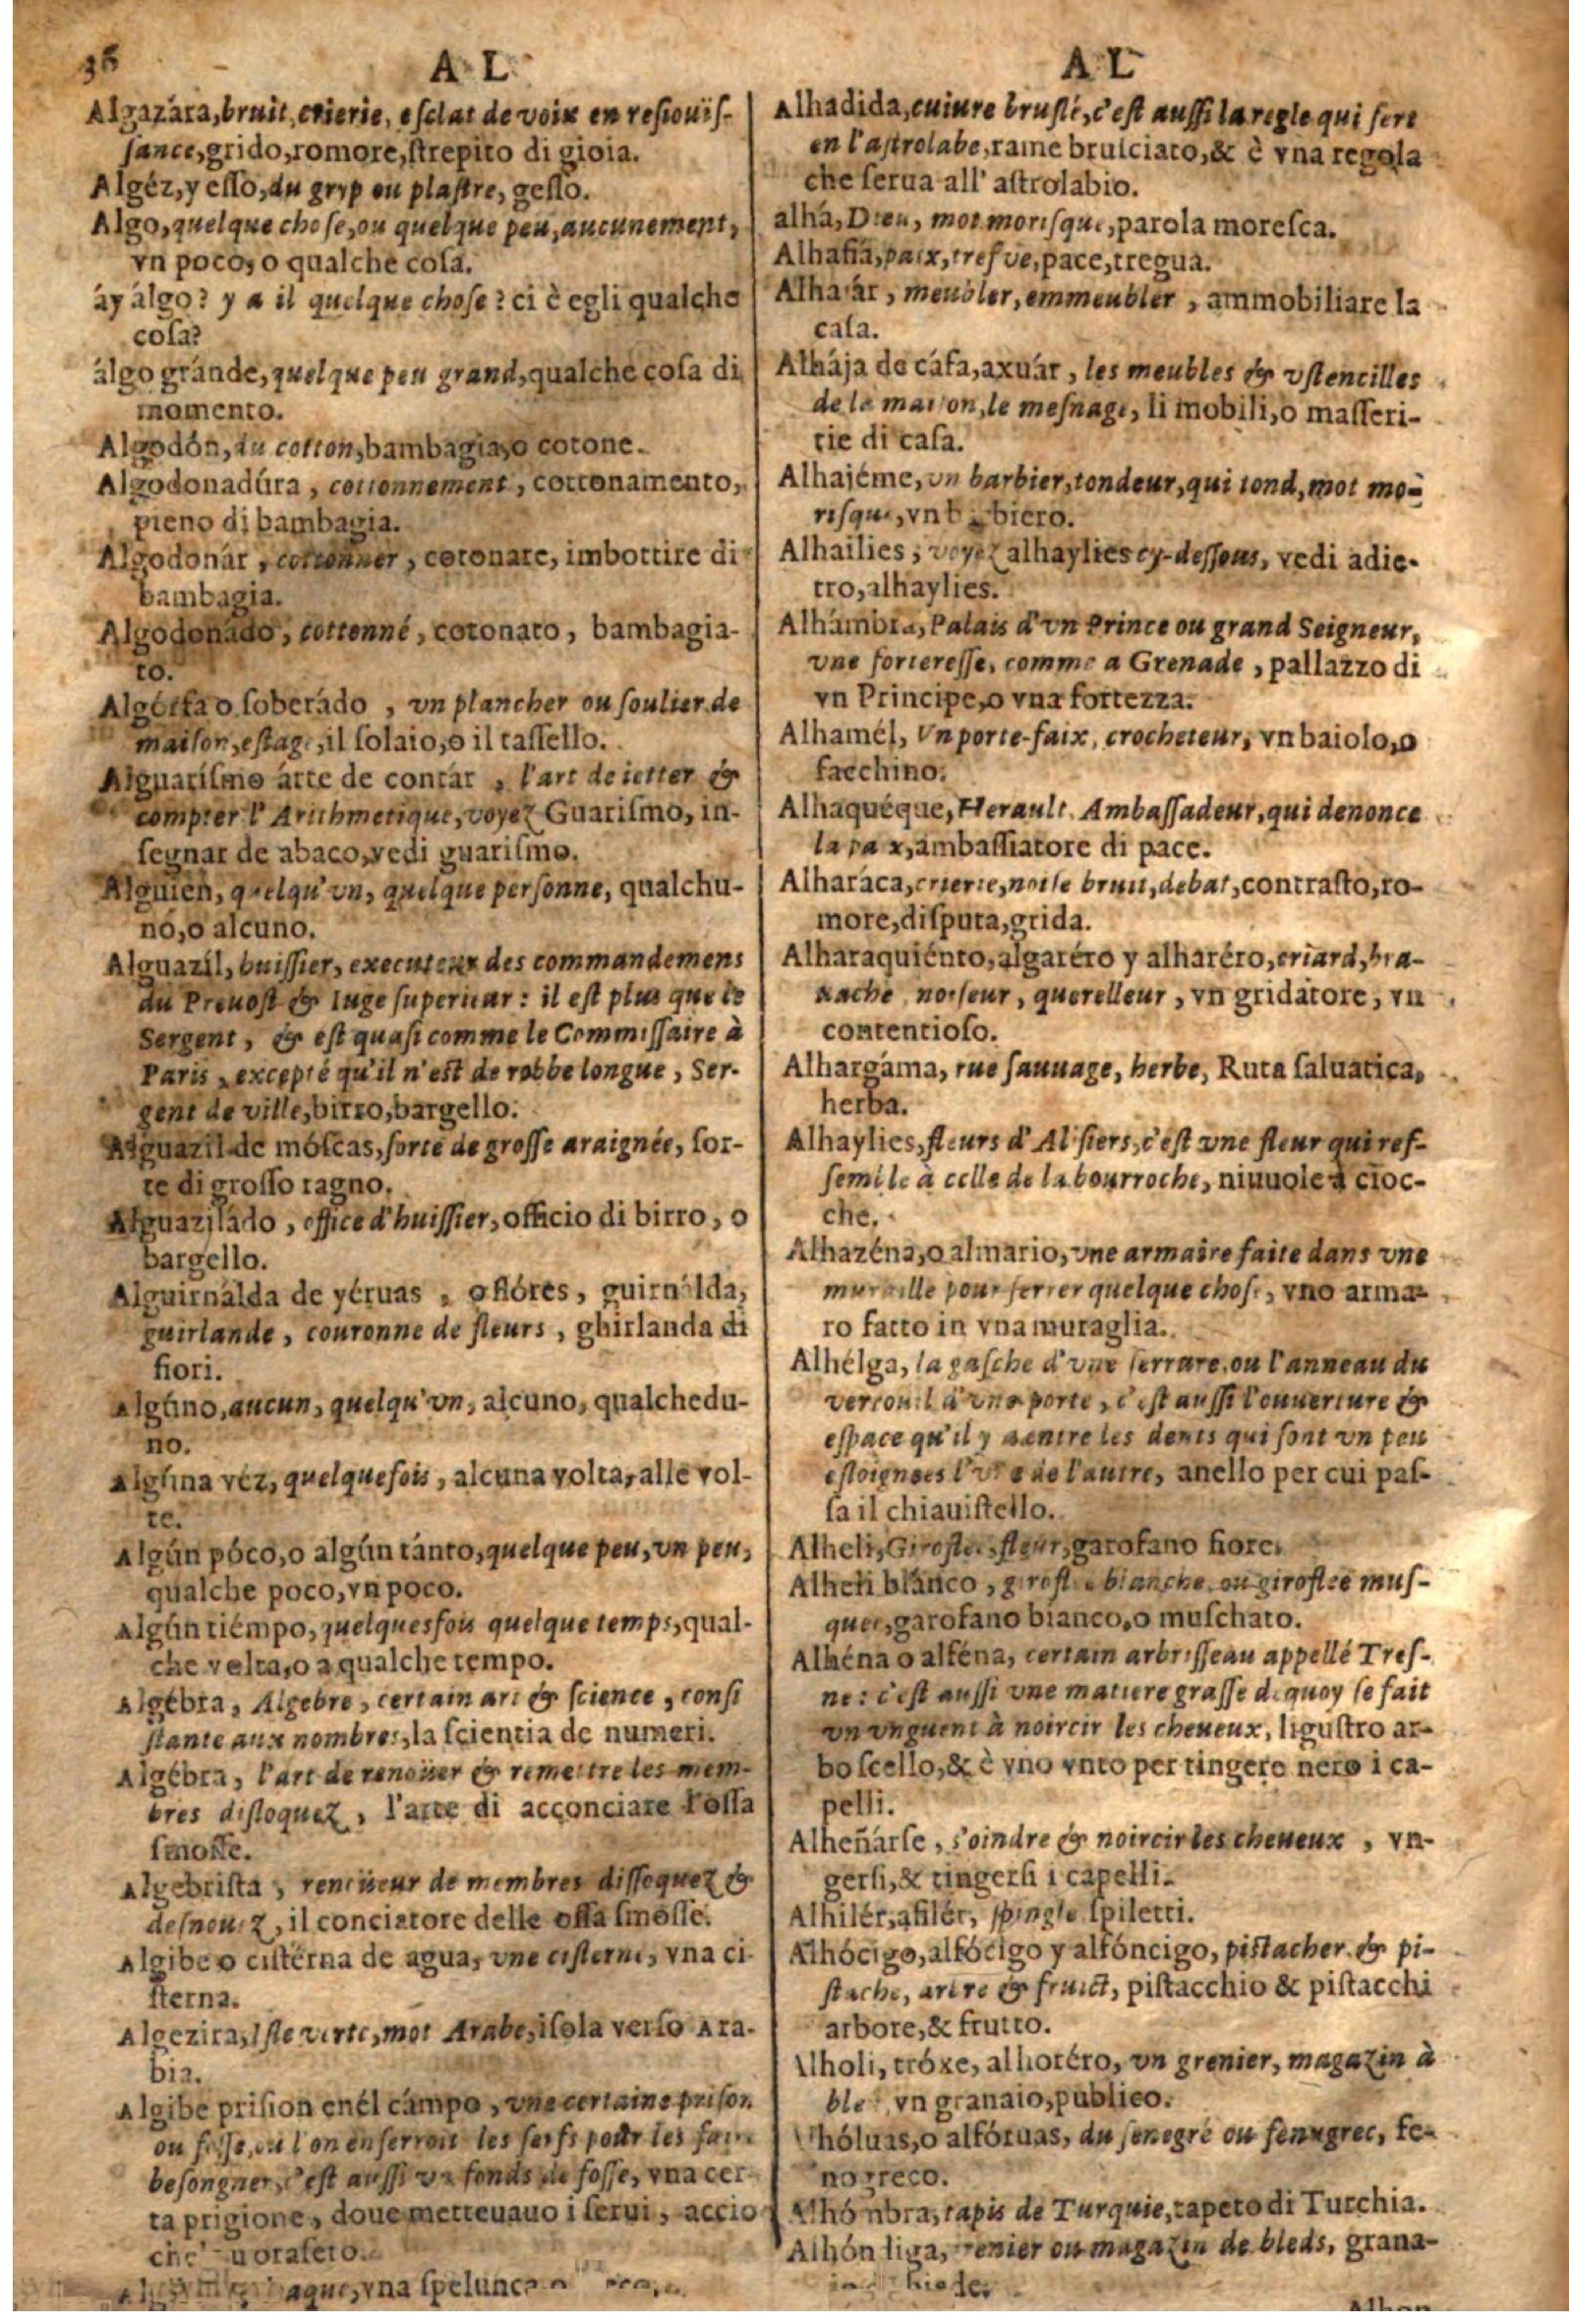 36
A L
Algazára, bruit, crierie, esclat de voix en resiouïs-
sance, grido, romore, strepito di gioia.
Algéz, y esso, du gryp ou plastre, gesso.
Algo, quelque chose, ou quelque peu, aucunement,
vn poco, o qualche cosa.
áy álgo? y a il quelque chose? ci è egli qualche
cosa?
álgo gránde, quelque peu grand, qualche cosa di
momento.
Algodón, du cotton, bambagia, o cotone.
Algodonadúra, cottonnement, cottonamento,
pieno di bambagia.
Algodonár, cottonner, cotonare, imbottire di
bambagia.
Algodonádo, cottonné, cotonato, bambagia-
to.
Algórfa o soberádo, vn plancher ou soulier de
maison, estage, il solaio, o il tassello.
Alguarísmo árte de contár, l'art de ietter &
compter l'Arithmetique, voyez Guarismo, in-
segnar de abaco, vedi guarismo.
Alguien, quelqu'vn, quelque personne, qualchu-
no, o alcuno.
Alguazíl, huissier, executeur des commandemens
du Preuost & Iuge superieur: il est plus que le
Sergent, & est quasi comme le Commissaire à
Paris, excepté qu'il n'est de robbe longue, Ser-
gent de ville, birro, bargello.
Alguazíl de móscas, sorte de grosse araignée, sor-
te di grosso ragno.
Alguaziládo, office d'huissier, officio di birro, o
bargello.
Alguirnálda de yéruas, o flóres, guirnálda,
guirlande, couronne de fleurs, ghirlanda di
fiori.
Algúno, aucun, quelqu'vn, alcuno, qualchedu-
no.
Algúna véz, quelquefois, alcuna volta, alle vol-
te.
Algún póco, o algún tánto, quelque peu, vn peu,
qualche poco, vn poco.
Algún tiémpo, quelquesfois quelque temps, qual-
che volta, o a qualche tempo.
Algébra, Algebre, certain art & science, consi
stante aux nombres, la scientia de numeri.
Algébra, l'art de renoüer & remettre les mem-
bres disloquez, l'arte di acconciare l'ossa
smosse.
Algebrista, renoüeur de membres dissoquez &
desnouez, il conciatore delle ossa smosse.
Algibe o cistérna de agua, vne cisterne, vna ci
sterna.
Algezira, Isle verte, mot Arabe, isola verso Ara-
bia.
Algibe prision enél cámpo, vne certaine prison
ou fosse, où l'on enserroit les serfs pour les faire
besongner, c'est aussi vn fonds de fosse, vna cer
ta prigione, doue metteuauo i serui, accio
che
aque, vna spelunca

A L
Alhadida, cuiure bruslé, c'est aussi la regle qui sert
en l'astrolabe, rame brusciato, & è vna regola
che serua all'astrolabio.
alhá, Dieu, mot morisque, parola moresca.
Alhafia, paix, trefve, pace, tregua.
Alhajár, meubler, emmeubler, ammobiliare la
casa.
Alhája de cása, axuár, les meubles & vstencilles
de la maison, le mesnage, li mobili, o masseri-
tie di casa.
Alhajéme, vn barbier, tondeur, qui tond, mot mo-
risque, vn barbiero.
Alhailies, voyez alhaylies cy-dessous, vedi adie-
tro, alhaylies.
Alhámbra, Palais d'vn Prince ou grand Seigneur,
vne forteresse, comme a Grenade, pallazzo di
vn Principe, o vna fortezza.
Alhamél, Vn porte-faix, crocheteur, vn baiolo, o
facchino.
Alhaquéque, Herault, Ambassadeur, qui denonce
la paix, ambassiatore di pace.
Alharáca, crierie, noise bruit, debat, contrasto, ro-
more, disputa, grida.
Alharaquiénto, algaréro y alharéro, criard, bra-
uache, noiseur, querelleur, vn gridatore, vn
contentioso.
Alhargáma, rue sauuage, herbe, Ruta saluatica,
herba.
Alhaylies, fleurs d'Alisiers, c'est vne fleur qui res-
semble à celle de la bourroche, niuuole à cioc-
che.
Alhazéna, o almario, vne armaire faite dans vne
muraille pour serrer quelque chose, vno arma-
ro fatto in vna muraglia.
Alhélga, la gasche d'vne serrure, ou l'anneau du
verrouil d'vne porte, c'est aussi l'ouuerture &
espace qu'il y a entre les dents qui sont vn peu
esloignees l'vne de l'autre, anello per cui pas-
sa il chiauistello.
Alheli, Giroflee, fleur, garofano fiore.
Alheli blánco, giroflee blanche, ou giroflee mus-
quee, garofano bianco, o muschato.
Alhéna o alféna, certain arbrisseau appellé Tres-
ne: c'est aussi vne matiere grasse dequoy se fait
vn vnguent à noircir les cheueux, ligustro ar-
boscello, & è vno vnto per tingere nero i ca-
pelli.
Alheñárse, s'oindre & noircir les cheueux, vn-
gersi, & tingersi i capelli.
Alhilér, afilér, spingle spiletti.
Alhócigo, alfócigo y alfóncigo, pistacher & pi-
stache, arbre & fruict, pistacchio & pistacchi
arbore, & frutto.
Alholi, tróxe, alhoréro, vn grenier, magazin à
ble, vn granaio, publico.
Alhóluas, o alfóruas, du senegré ou fenugrec, fe-
nogreco.
Alhómbra, tapis de Turquie, tapeto di Turchia.
Alhóndiga, grenier ou magazin de bleds, grana-
Alhon